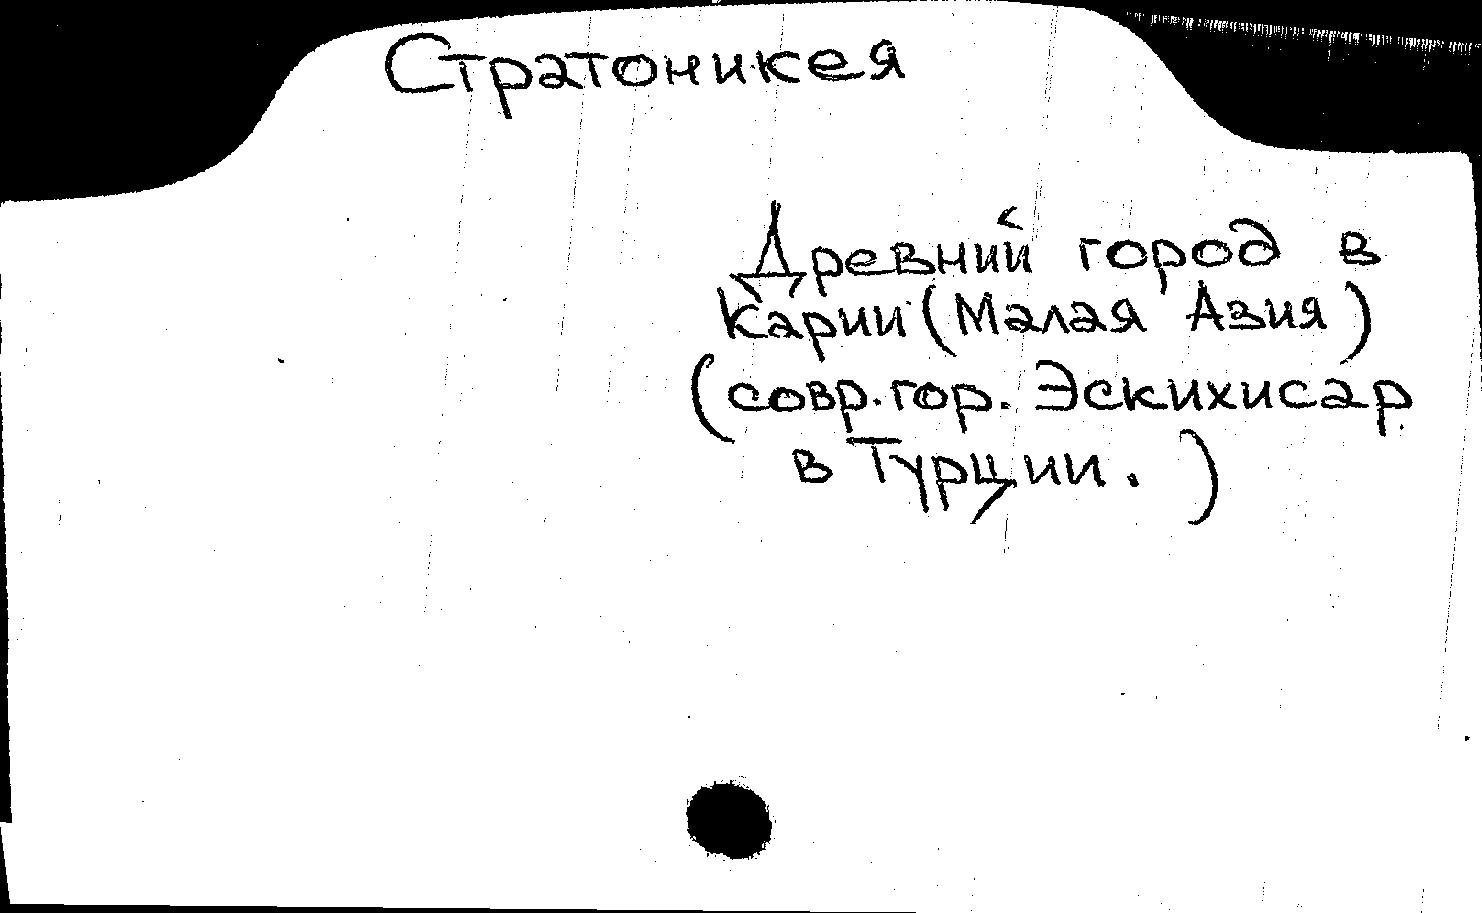 Стратоникея
Древний город в
Карии (Малая Азия)
(совр. гор. Эскихисар
в Турции.)